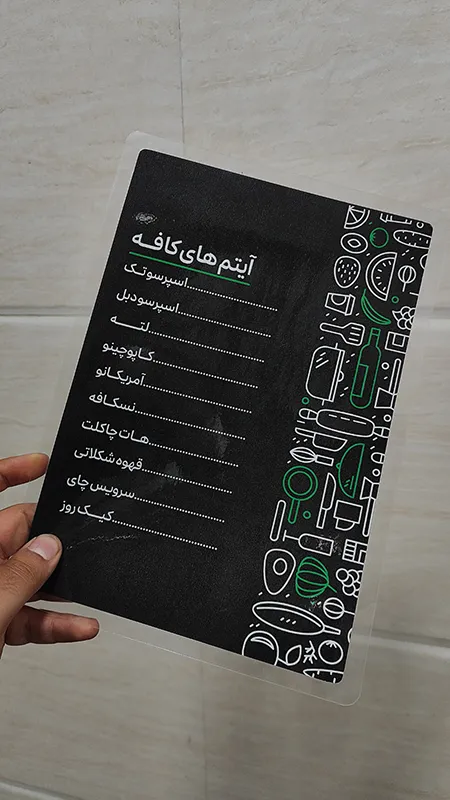 آیتم های کافه
اسپرسو تک
اسپرسو دبل
لته
کاپوچینو
آمریکانو
نسکافه
هات چاکلت
قهوه شکلاتی
سرویس چای
کیک روز